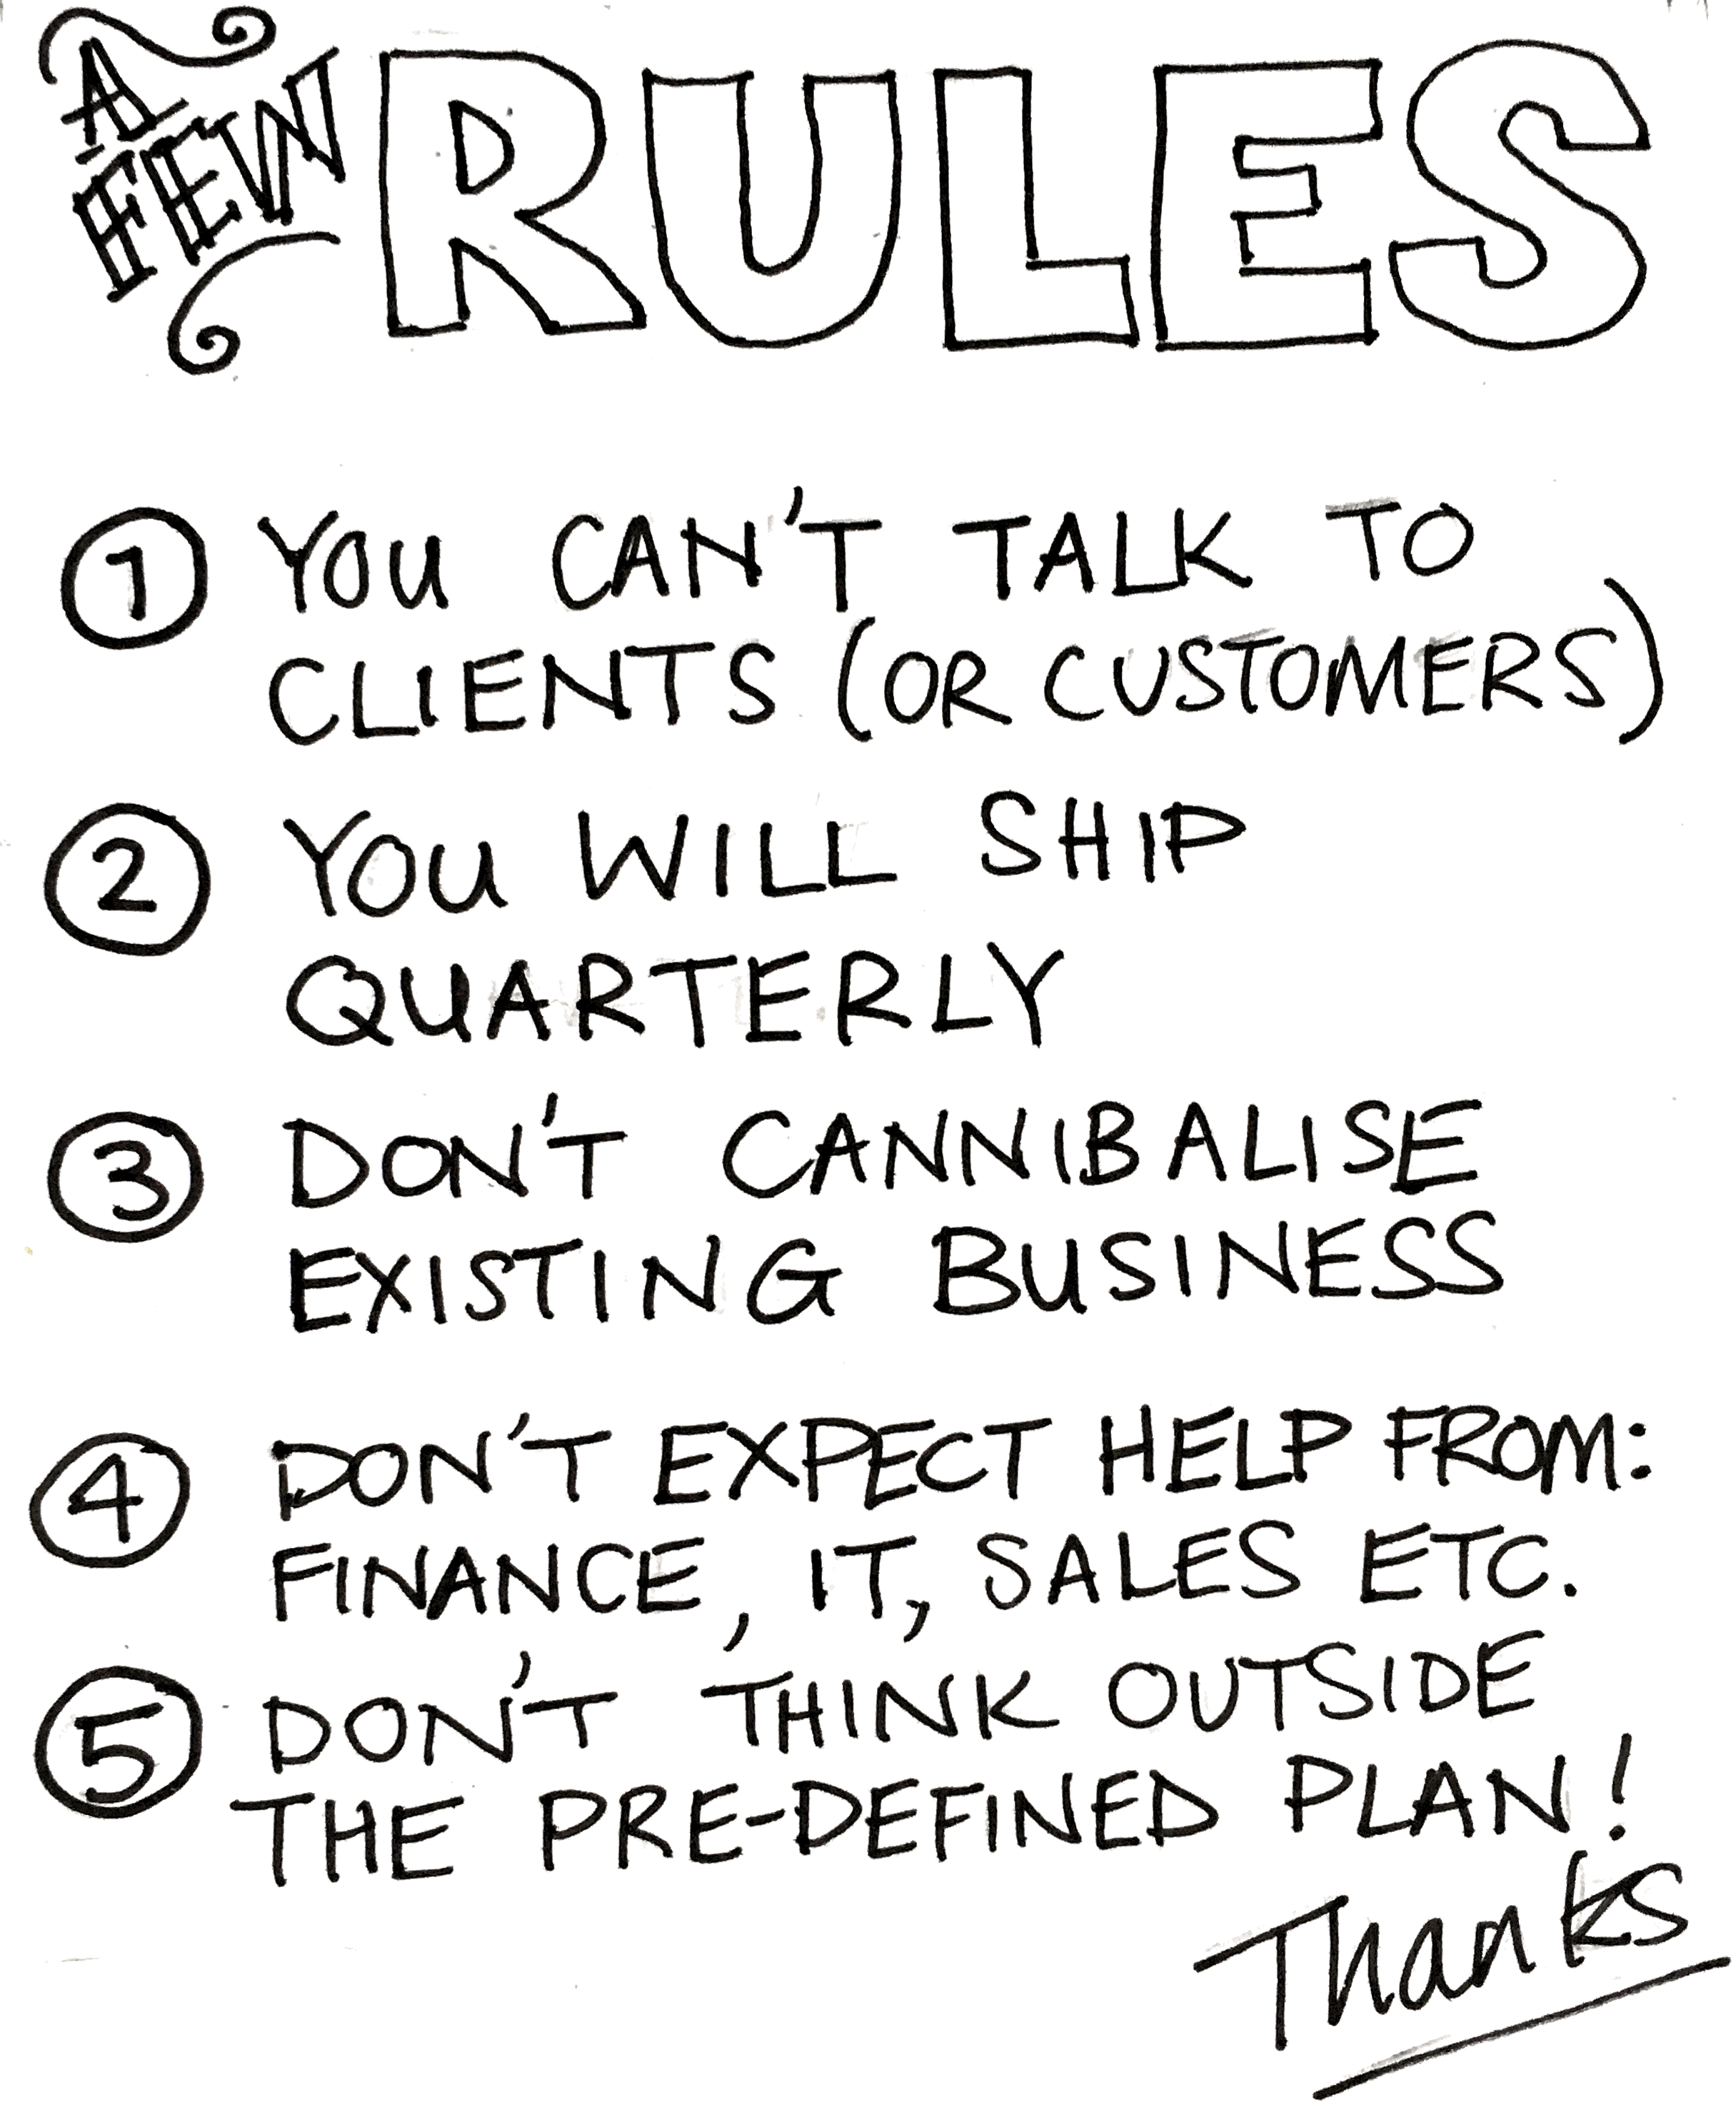 A
FEW
RULES
1 YOU CAN'T TALK TO
CLIENTS (OR CUSTOMERS)
2 YOU WILL SHIP
QUARTERLY
3 DON'T CANNIBALISE
EXISTING BUSINESS
4 DON'T EXPECT HELP FROM:
FINANCE, IT, SALES ETC.
5 DON'T THINK OUTSIDE
THE PRE-DEFINED PLAN!
Thanks